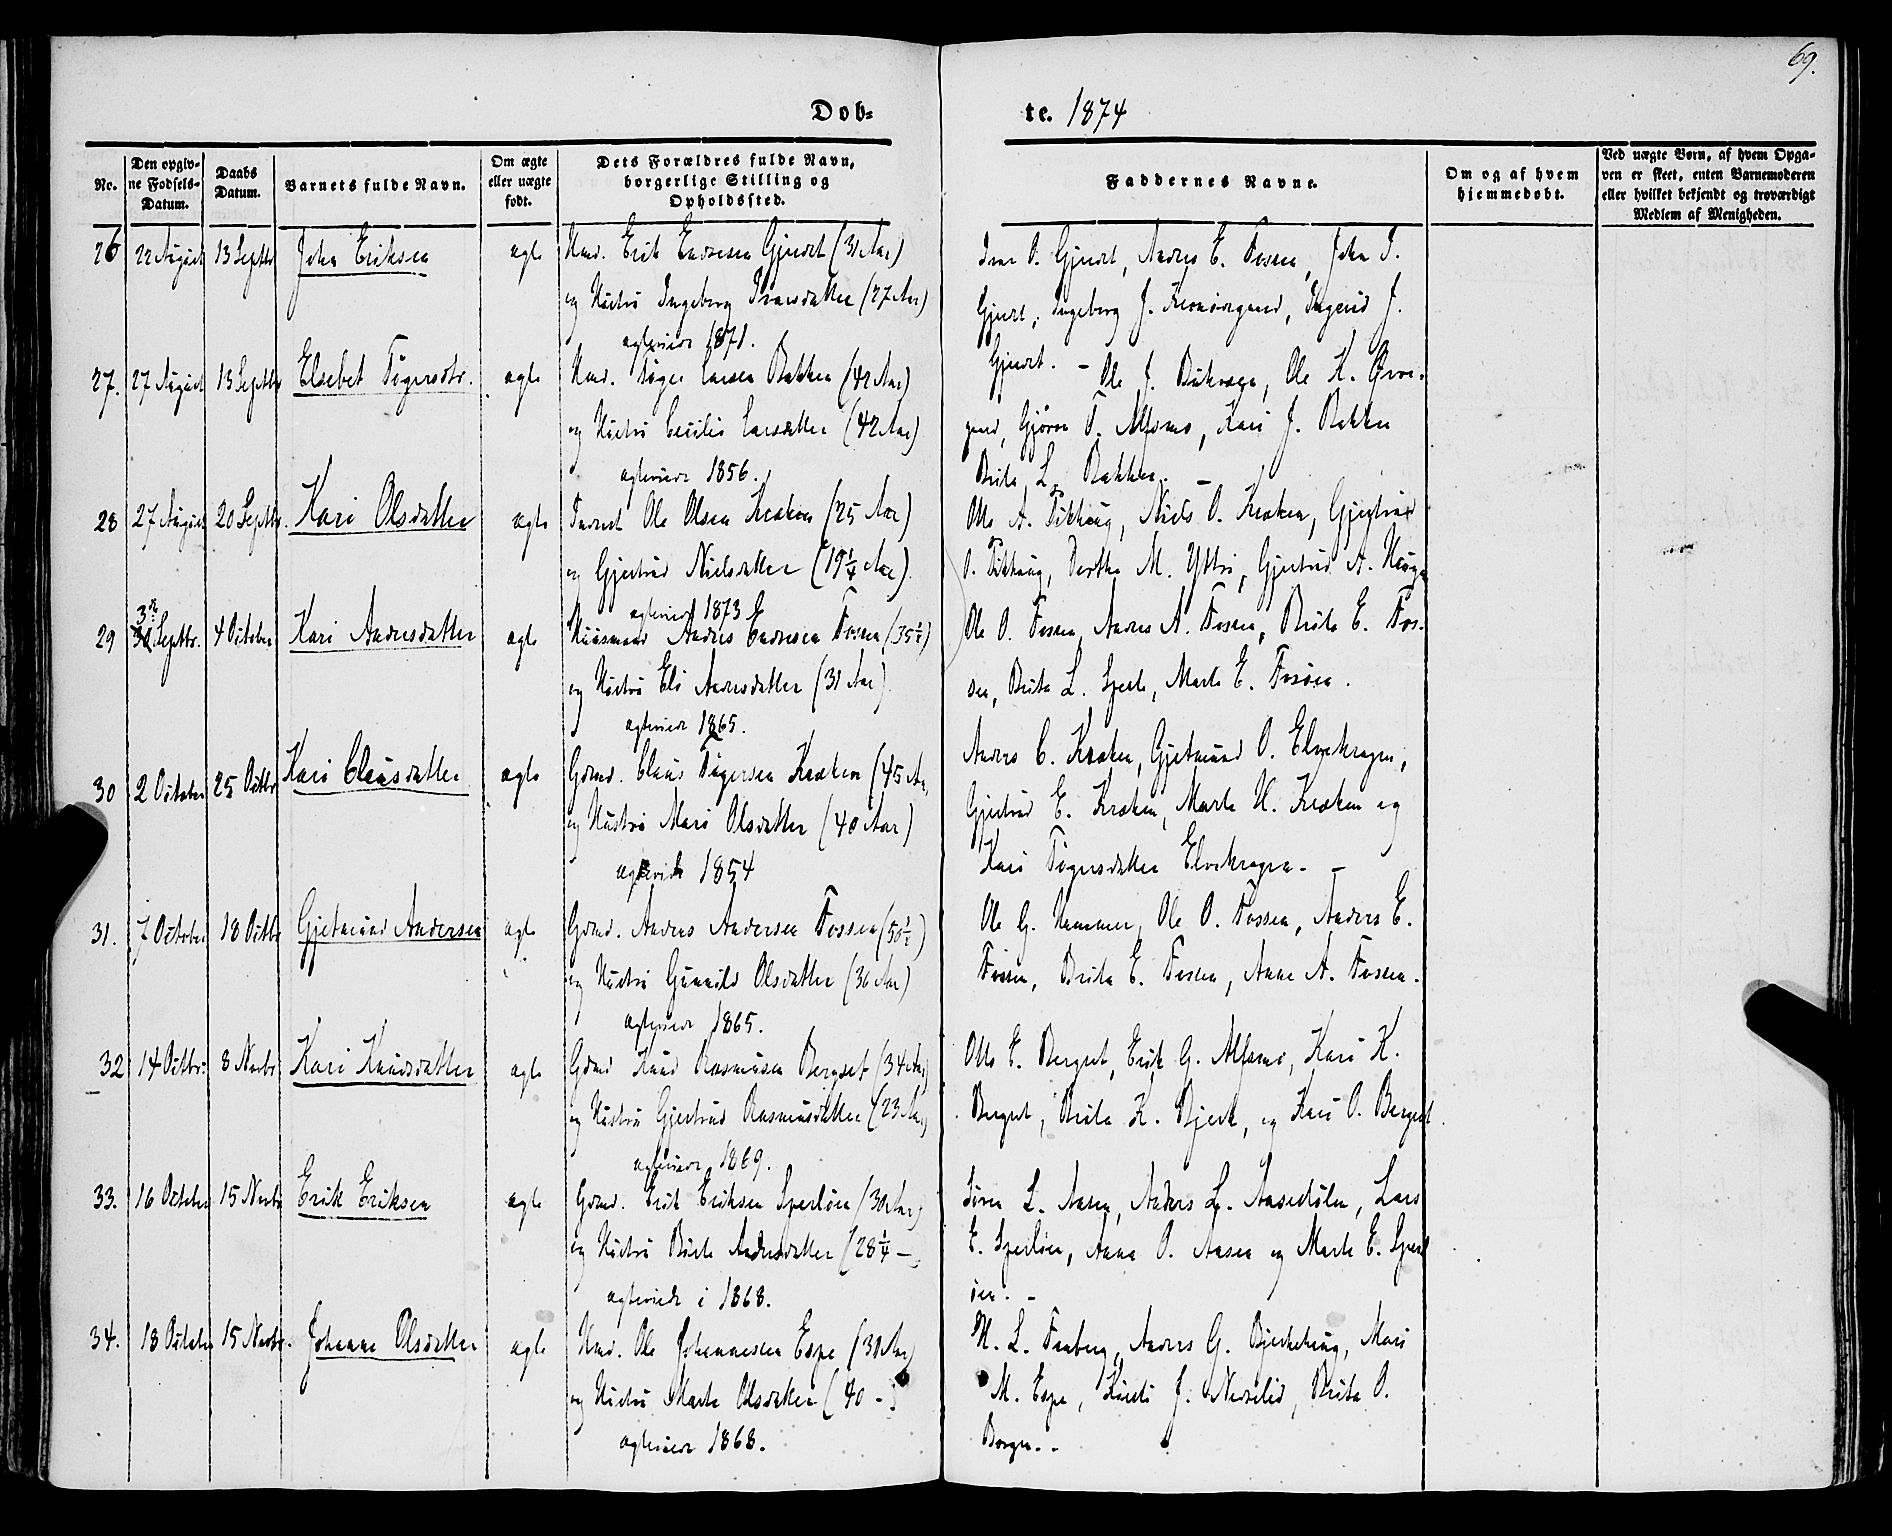 69.
Døb=
te. 1874
No.
Den opgiv-
ne Fødsels-
Datum.
Daabs
Datum.
Barnets fulde Navn.
Om ægte
eller uægte
født.
Dets Forældres fulde Navn,
borgerlige Stilling og
Opholdssted.
Faddernes Navne.
Om og af hvem
hjemmedøbt.
Ved uægte Børn, af hvem Opga-
ven er skeet, enten Barnemoderen
eller hvilket bekjendt og troværdigt
Medlem af Menigheden.
26 22 August 13 Septbr John Eriksen ægte Hmd. Erik Endresen Gjuvet (31 Aar)
og Hustru Ingeborg Iversdatter (27 Aar)
ægteviede 1871.
Iver O. Gjuvet, Andres E. Fossen, John I.
Gjuvet, Ingeborg J. Ingerid J.
Gjuvet. -
27. 27 August 13 Septbr Elsebet Tøgersdtr. ægte Hmd. Tøger Larsen Bakken (42 Aar)
og Hustru Cecilie Larsdatter (42 Aar)
ægteviede 1856.
Ole J. Ole K.
T. Alsmo, Kari J. Bakken
Brita L. Bakken. -
28 27 August 20 Septbr. Kari Olsdatter ægte Inderst Ole Olsen Kræken (25 Aar)
og Gjertrud Nielsdatter (19 1/4 Aar).
ægteviede 1873
Ole A. Tikhaug, Niels O. Kræken, Gjertrud
O. Tikhaug, Dorthe M. Yttri, Gjertrud A.
29 3die Septbr. 4 October Kari Andersdatter ægte Huusmand Andres Endresen Fossen (35 1/2)
og Hustru Eli Andersdatter (31 Aar)
ægteviede 1865.
Ole O. Fossen, Andres A. Fossen, Brita E. Fos-
sen, Brita L. Sperle, Marte E. Fosøen.
30 2 October 25 Octbr Kari Clausdatter ægte Gdmd. Claus Tøgersen Kræken (45 Aar,
og Hustru Mari Olsdatter (40 Aar)
ægteviede 1854
Anders C. Kræken, Gjetmund O. Elvekragen,
Gjertrud E. Kræken, Marte H. Kræken og
Kari Tøgersdatter Elvekragen. -
31. 7 October 18 Octbr Gjetmund Andersen ægte Gdmd. Andres Andersen Fossen (50 1/2)
og Hustru Gunnild Olsdatter (36 Aar)
ægteviede 1865.
Ole G. Ole O. Fossen, Anders E.
Fossen, Brita E. Fossen, Anne A. Fossen.
32 14 Octbr. 8 Novbr Kari Knudsdatter ægte Gdmd Knud Rasmusen Bergset (34 Aar)
og Hustru Gjertrud Rasmusdatter (23 Aar)
ægteviede 1869.
Ole E. Bergset, Erik G. Alsmo, Kari K.
Bergset, Brita K. Bjerk, og Kari O. Bergset.
33. 16 October 15 Novbr Erik Eriksen ægte Gdmd. Erik Eriksen Sperløen (30 Aar)
og Hustru Børte Andersdatter (28 1/4 -)
ægteviede i 1868.
Søren L. Aasen, Anders L. Aasetølen, Lars
E. Sperløen, Anna O. Aasen og Marte E. Sperl
øen. -
34. 18 October 15 Novbr. Johanne Olsdatter ægte Hmd. Ole Johannesen Espe (30 Aar)
og Hustru Marte Olsdatter (40 -)
ægteviede 1868.
H. L. Faaberg, Anders G. Bjerkehaug, Mari
M. Espe, Kirsti J. Nedrelid, Brita O.
Borgen. -